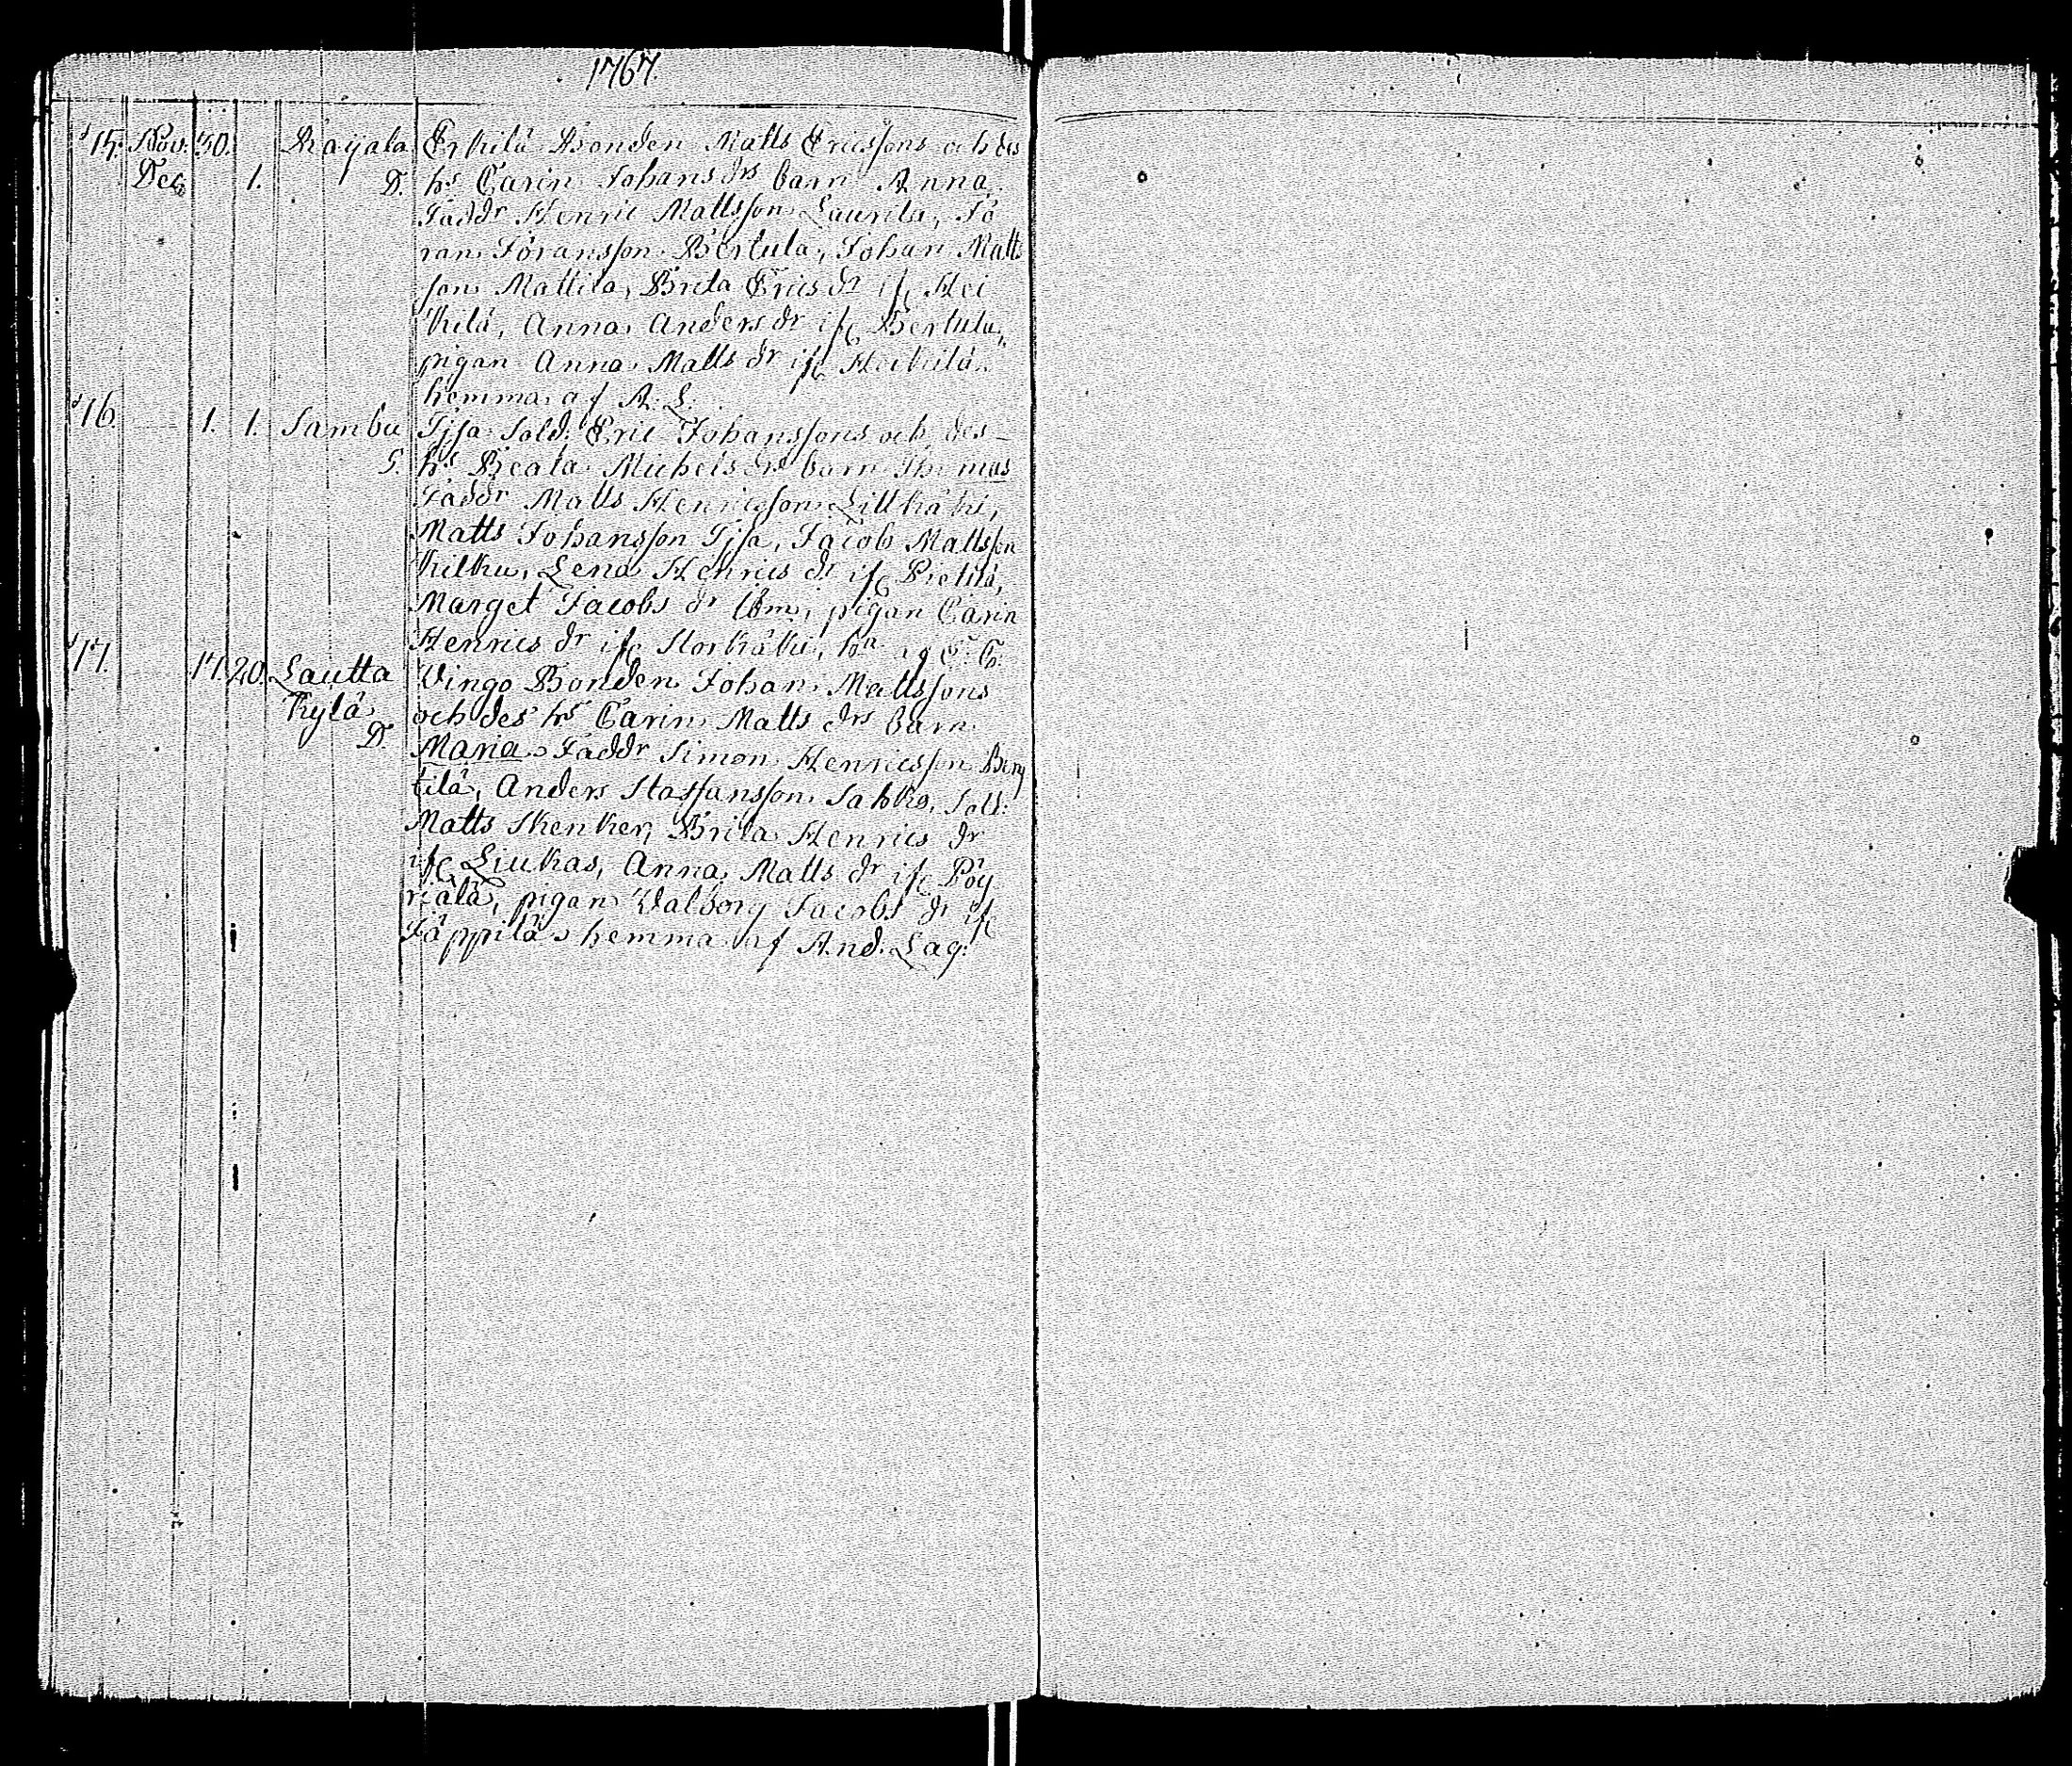 1767.
15. Nov. 30. Raijala Erkilä Bonden Matts Ericssons och des
Dec. 1. D. hs Carin Johans drs barn Anna.
Faddr Henric Mattsson Laurila, Jö
ran Jöransson Bertula, Johan Matts
son Mattila, Brita Erics dr if. Hei
kilä, Anna Anders dr if. Bertula,
pigan Anna Matts dr if. Heikilä.
hemma af A. L.
16. 1. 1. Sambu Ijsa Sold. Eric Johanssons och des
S. hs Beata Michels drs barn Thomas
Faddr Matts Henricsson Lillkäki,
Matts Johansson Ijsa, Jacob Mattsson
Kilku, Lena Henrics dr if. Pietilä,
Marget Jacobs dr ibm, pigan Carin
Henrics dr if. Storkäki, ha af
17. 17. 20. Lautta Vingo Bonden Johan Mattssons
kylä och des hs Carin Matts drs barn
D. Maria. Faddr Simon Henricsson
tilä, Anders Staffansson Sahko, Sold.
Matts Skenker, Brita Henrics dr
if. Liukas, Anna Matts dr if. Pöy
riälä, pigan Walborg Jacobs dr if.
Jäppilä hemma af And. Lag.